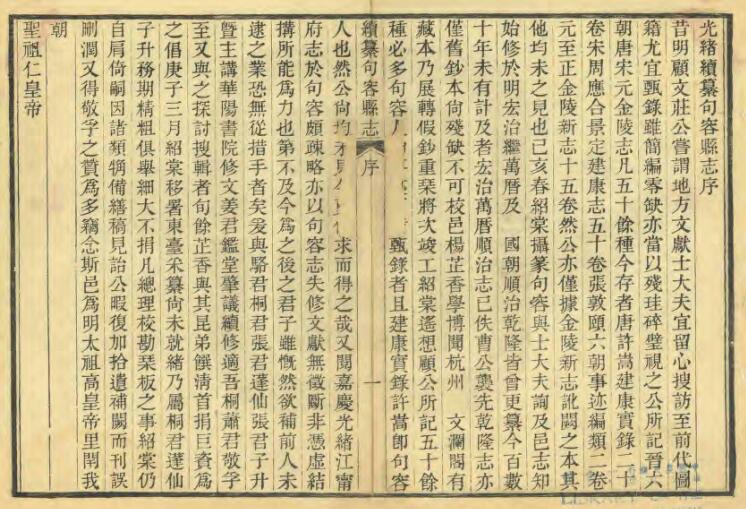 光緒續纂句容縣志序
昔明顧文莊公嘗謂地方文獻士大夫宜留心搜訪至前代圖
籍尤宜甄錄雖簡編零缺亦當以殘珪碎璧視之公所記晉六
朝唐宋元金陵志凡五十餘種今存者唐許嵩建康實錄二十
卷宋周應合景定建康志五十卷張敦頤六朝事迹編類二卷
元至正金陵新志十五卷然公亦僅據金陵新志訛闕之本其
他均未之見也己亥春紹棠攝篆句容與士大夫詢及邑志知
始修於明宏治繼萬曆及 國朝順治乾隆皆曾更纂今百數
十年未有計及者宏治萬曆順治志已佚曹公襲先乾隆志亦
僅舊鈔本尚殘缺不可校邑楊芷香學博聞杭州 文瀾閣有
藏本乃展轉假鈔重栞將次竣工紹棠遙想顧公所記五十餘
種必多句容人 甄錄者且建康實錄許嵩卽句容
續纂句容縣志 序 一
人也然公尚均未見 求而得之哉又閱嘉慶光緒江甯
府志於句容頗疎略亦以句容志失修文獻無徵斷非憑虛結
搆所能爲力也第不及今爲之後之君子雖慨然欲補前人未
逮之業恐無從措手者矣爰與駱君桐君張君蓬仙張君子升
曁主講華陽書院修文姜君鑑堂肇議續修適吾桐蕭君敬孚
至又與之探討搜輯者句餘芷香與其昆弟饌淸首捐巨貲爲
之倡庚子三月紹棠移署東臺采纂尚未就緒乃屬桐君蓬仙
子升務期精粗俱舉細大不捐凡總理校勘栞板之事紹棠仍
自肩倚嗣因諸類犕備繕稿見詒公暇復加拾遺補闕而刊誤
剛潤又得敬孚之贊爲多竊念斯邑爲明太祖高皇帝里閈我
朝
聖祖仁皇帝